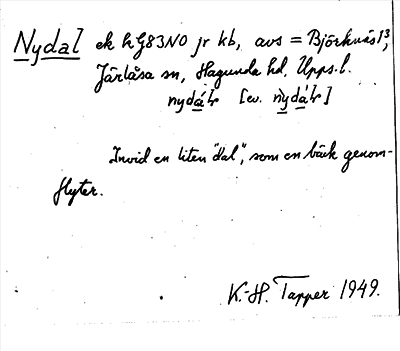 Nydal ek hG83NO jr kb, avs = Björknäs 1³,
Järlåsa sn, Hagunda hd, Upps. l.
nydáɫr [ev. nỳdáɫr]
Invid en liten "dal", som en bäck genom-
flyter.
K.-H. Tapper 1949.